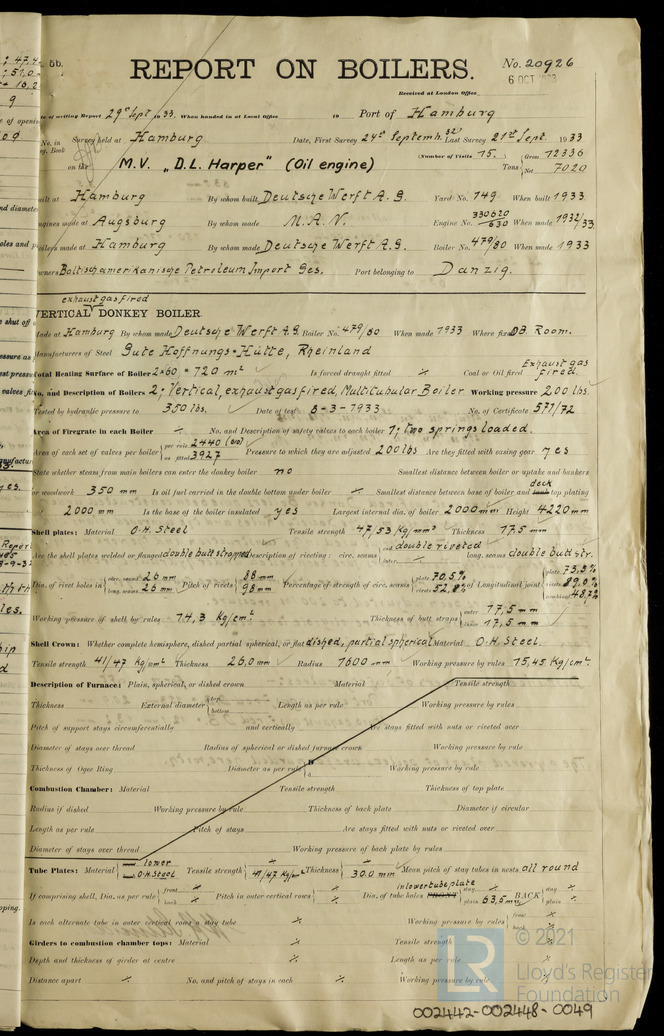 5b.
REPORT ON BOILERS.
No. 20926
6 OCT 1933
Received at London Office
of writing Report 29th Sept 1933. When handed in at Local Office 19 Port of Hamburg
No. in Reg. Book Survey held at Hamburg Date, First Survey 24th Septemb. 32 Last Survey 21st Sept. 1933
on the M.V. „D.L. Harper" (Oil engine) (Number of Visits 75.) Tons Gross 12336 Net 7020
Built at Hamburg By whom built Deutsche Werft A.G. Yard No. 149 When built 1933
Engines made at Augsburg By whom made M.A.N. Engine No. 330620/630 When made 1932/33
Boilers made at Hamburg By whom made Deutsche Werft A.G. Boiler No. 479/80 When made 1933
Owners Baltischamerikanische Petroleum Import Ges. Port belonging to Danzig.
exhaust gas fired
VERTICAL DONKEY BOILER.
Made at Hamburg By whom made Deutsche Werft A.G. Boiler No. 479/80 When made 1933 Where fixed DB. Room.
Manufacturers of Steel Gute Hoffnungs-Hütte, Rheinland
Total Heating Surface of Boiler 2×60 = 120 m² Is forced draught fitted Coal or Oil fired Exhaust gas fired.
No. and Description of Boilers 2; Vertical, exhaust gas fired, Multitubular Boiler Working pressure 200 lbs.
Tested by hydraulic pressure to 350 lbs. Date of test 8-3-1933 No. of Certificate 571/72
Area of Firegrate in each Boiler No. and Description of safety valves to each boiler 1; two springs loaded.
Area of each set of valves per boiler per rule 2440 as fitted 3927 Pressure to which they are adjusted 200 lbs Are they fitted with easing gear yes
State whether steam from main boilers can enter the donkey boiler no Smallest distance between boiler or uptake and bunkers
or woodwork 350 mm Is oil fuel carried in the double bottom under boiler Smallest distance between base of boiler and deck tank top plating
2000 mm Is the base of the boiler insulated yes Largest internal dia. of boiler 2000 mm Height 4220 mm
Shell plates: Material O.H. Steel Tensile strength 47,53 Kg/mm² Thickness 17,5 mm
Are the shell plates welded or flanged double butt strapped Description of riveting: circ. seams end double riveted inter. long. seams double butt str.
Dia. of rivet holes in circ. seams 26 mm long. seams 26 mm Pitch of rivets 88 mm 98 mm Percentage of strength of circ. seams plate 70,5% rivets 52,8% of Longitudinal joint plate 73,5% rivets 89,0% combined
Working pressure of shell by rules 14,3 Kg/cm² Thickness of butt straps outer 17,5 mm inner 17,5 mm
Shell Crown: Whether complete hemisphere, dished partial spherical, or flat dished, partial spherical Material O.H. Steel.
Tensile strength 41/47 Kg/mm² Thickness 26,0 mm Radius 1600 mm Working pressure by rules 15,45 Kg/cm².
Description of Furnace: Plain, spherical, or dished crown Material Tensile strength
Thickness External diameter top bottom Length as per rule Working pressure by rules
Pitch of support stays circumferentially and vertically Are stays fitted with nuts or riveted over
Diameter of stays over thread Radius of spherical or dished furnace crown Working pressure by rule
Thickness of Ogee Ring Diameter as per rule D d Working pressure by rule
Combustion Chamber: Material Tensile strength Thickness of top plate
Radius if dished Working pressure by rule Thickness of back plate Diameter if circular
Length as per rule Pitch of stays Are stays fitted with nuts or riveted over
Diameter of stays over thread Working pressure of back plate by rules
Tube Plates: Material lower O.H. Steel Tensile strength 41/47 Kg/mm² Thickness 30.0 mm Mean pitch of stay tubes in nests all round
If comprising shell, Dia. as per rule front back Pitch in outer vertical rows Dia. of tube holes in lower tube plate stay plain 63,5 mm BACK stay plain
Is each alternate tube in outer vertical rows a stay tube Working pressure by rules front back
Girders to combustion chamber tops: Material Tensile strength
Depth and thickness of girder at centre Length as per rule
Distance apart No. and pitch of stays in each Working pressure by rule
© 2021
Lloyd's Register
Foundation
002442-002448-0049